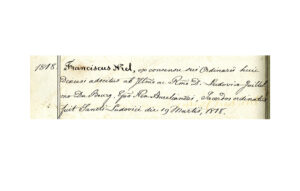 1818 Franciscus Niel, ex concensu sui Ordinarii huic
diœcesi adscitus ab Illmo ac Rmo D. Ludovico Guillel
mo Du Bourg, Epo Neo Aurelianensi, Sacerdos ordinatus
fuit Sancti Ludovici die 19 Martii, 1818.